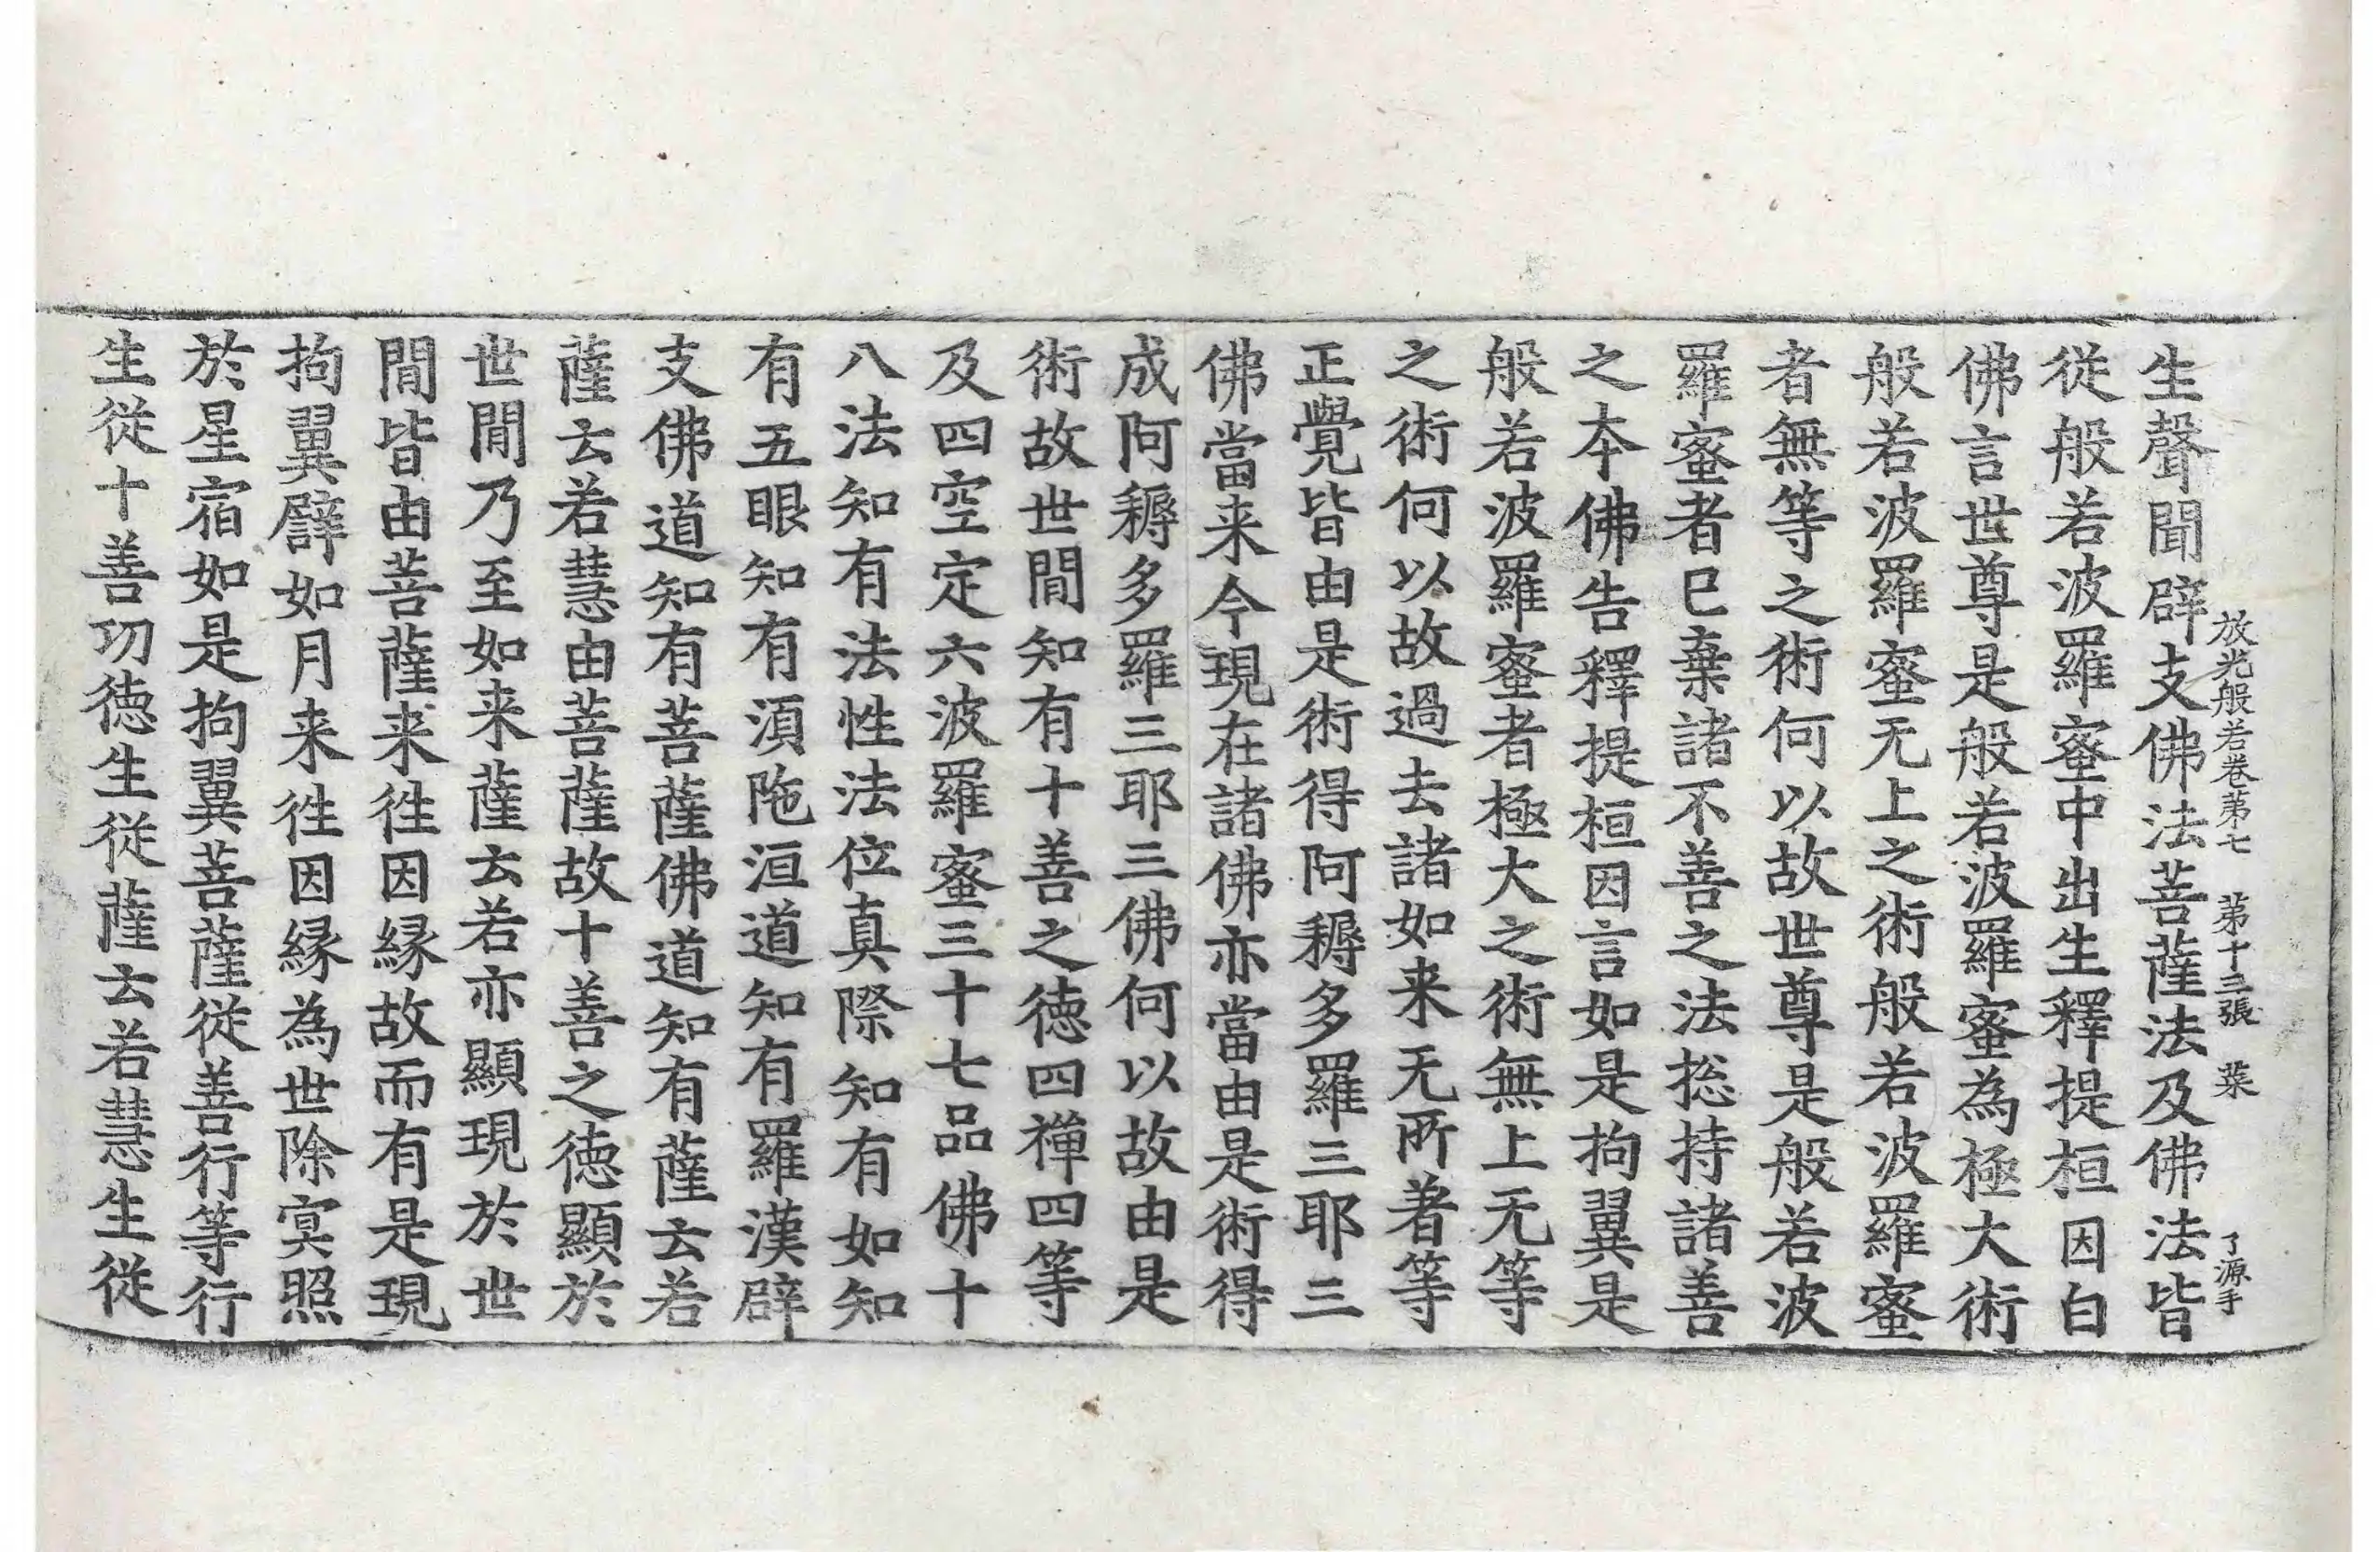 放光般若卷第七　第十三張　菜　了源手
生聲聞辟支佛法菩薩法及佛法皆
從般若波羅蜜中出生釋提桓因白
佛言世尊是般若波羅蜜為極大術
般若波羅蜜无上之術般若波羅蜜
者無等之術何以故世尊是般若波
羅蜜者已棄諸不善之法捴持諸善
之本佛告釋提桓因言如是拘翼是
般若波羅蜜者極大之術無上无等
之術何以故過去諸如来无所著等
正覺皆由是術得阿耨多羅三耶三
佛當来今現在諸佛亦當由是術得
成阿耨多羅三耶三佛何以故由是
術故世間知有十善之德四禪四等
及四空定六波羅蜜三十七品佛十
八法知有法性法位真際知有如知
有五眼知有須陁洹道知有羅漢辟
支佛道知有菩薩佛道知有薩云若
薩云若慧由菩薩故十善之德顯於
世間乃至如来薩云若亦顯現於世
間皆由菩薩来徃因縁故而有是現
拘翼譬如月来徃因縁為世除冥照
於星宿如是拘翼菩薩從善行等行
生從十善功德生從薩云若慧生從